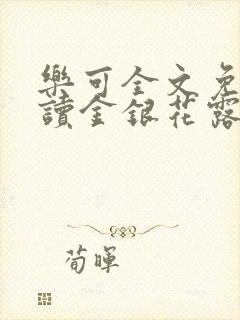 樂可全文免
讀金銀花露
荀暉